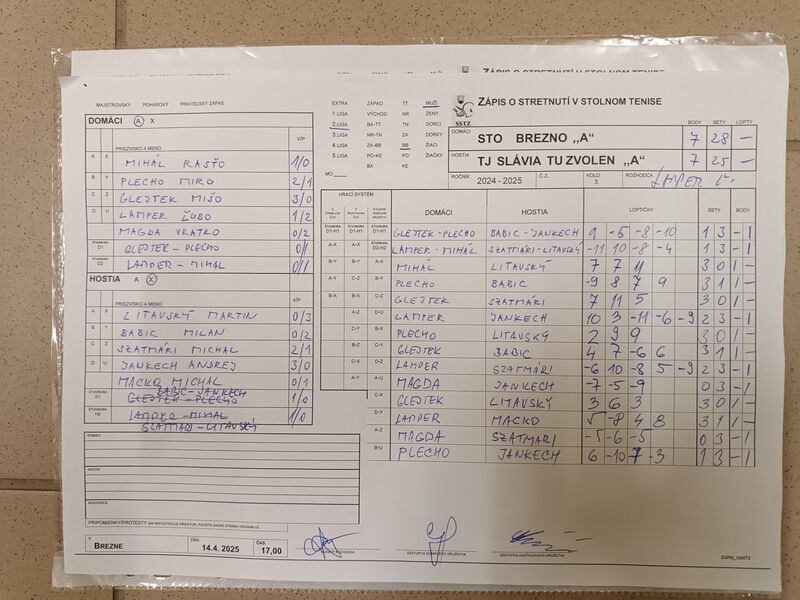 ZÁPIS O STRETNUTÍ V STOLNOM TENISE
MAJSTROVSKÝ POHÁROVÝ PRIATEĽSKÝ ZÁPAS
EXTRA ZÁPAD TT MUŽI
1.LIGA VÝCHOD NR ŽENY
2.LIGA BA-TT TN DORCI
3.LIGA NR-TN ZA DORKY
4.LIGA ZA-BB BB ŽIACI
5.LIGA PO-KE PO ŽIAČKY
BA KE
MO
SSTZ
ZÁPIS O STRETNUTÍ V STOLNOM TENISE
BODY SETY LOPTY
DOMÁCI STO BREZNO „A" 7 28 —
HOSTIA TJ SLÁVIA TU ZVOLEN „A" 7 25 —
ROČNÍK 2024 - 2025 Č.Z. KOLO 3. ROZHODCA LAMPER Ľ.
DOMÁCI A X
PRIEZVISKO A MENO V/P
A X MIHÁL RASŤO 1/0
B Y PLECHO MIRO 2/1
C Z GLEJTEK MIŠO 3/0
D U LAMPER ĽUBO 1/2
MAGDA VRATKO 0/2
ŠTVORHRA D1 GLEJTEK - PLECHO 0/1
ŠTVORHRA D2 LAMPER - MIHAL 0/1
HOSTIA A X
PRIEZVISKO A MENO V/P
A X LITAVSKÝ MARTIN 0/3
B Y BABIC MILAN 0/2
C Z SZATMÁRI MICHAL 2/1
D U JANKECH ANDREJ 3/0
MACKO MICHAL 0/1
BABIC - JANKECH
ŠTVORHRA D1 GLEJTEK - PLECHO 1/0
ŠTVORHRA H2 LAMPER - MIHAL 1/0
SZATMARI - LITAVSKÝ
DOMÁCI
HOSTIA
ROZHODCA
HRACÍ SYSTÉM
DOMÁCI HOSTIA LOPTIČKY SETY BODY
D1-H1 D1-H1 D1-H1 GLEJTEK-PLECHO BABIC-JANKECH 9 -5 -8 -10 1 3 - 1
A-X A-X D2-H2 LAMPER-MIHÁL SZATMÁRI-LITAVSKÝ -11 10 -8 -4 1 3 - 1
B-Y B-Y A-X MIHÁL LITAVSKÝ 7 7 11 3 0 1 -
A-Y C-Z B-Y PLECHO BABIC -9 8 7 9 3 1 1 -
B-X B-X C-Z GLEJTEK SZATMÁRI 7 11 5 3 0 1 -
A-Z D-U LAMPER JANKECH 10 3 -11 -6 -9 2 3 - 1
C-Y B-X PLECHO LITAVSKÝ 2 9 9 3 0 1 -
B-Z C-Y GLEJTEK BABIC 4 7 -6 6 3 1 1 -
C-X D-Z LAMPER SZATMÁRI -6 10 -8 5 -9 2 3 - 1
A-Y A-U MAGDA JANKECH -7 -5 -9 0 3 - 1
C-X GLEJTEK LITAVSKÝ 3 6 3 3 0 1 -
D-Y LAMPER MACKO 5 -8 4 8 3 1 1 -
A-Z MAGDA SZATMARI -5 -6 -5 0 3 - 1
B-U PLECHO JANKECH 6 -10 7 -3 1 3 - 1
PRIPOMIENKY/PROTESTY (AK NEPOSTAČUJE PRIESTOR, POUŽITE ZADNÚ STRANU ORIGINÁLU)
V BREZNE DŇA 14.4. 2025 ČAS 17,00
ZÁSTUPCA DOMÁCEHO DRUŽSTVA
ZÁSTUPCA HOSŤUJÚCEHO DRUŽSTVA
ZAPIS_OkSTZ